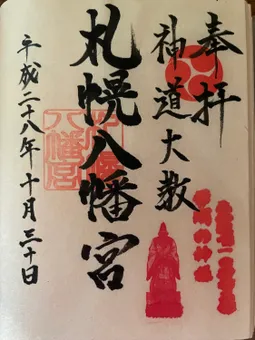 奉拝
神道大教
札幌八幡宮
八幡宮
平成二十八年十月三十日